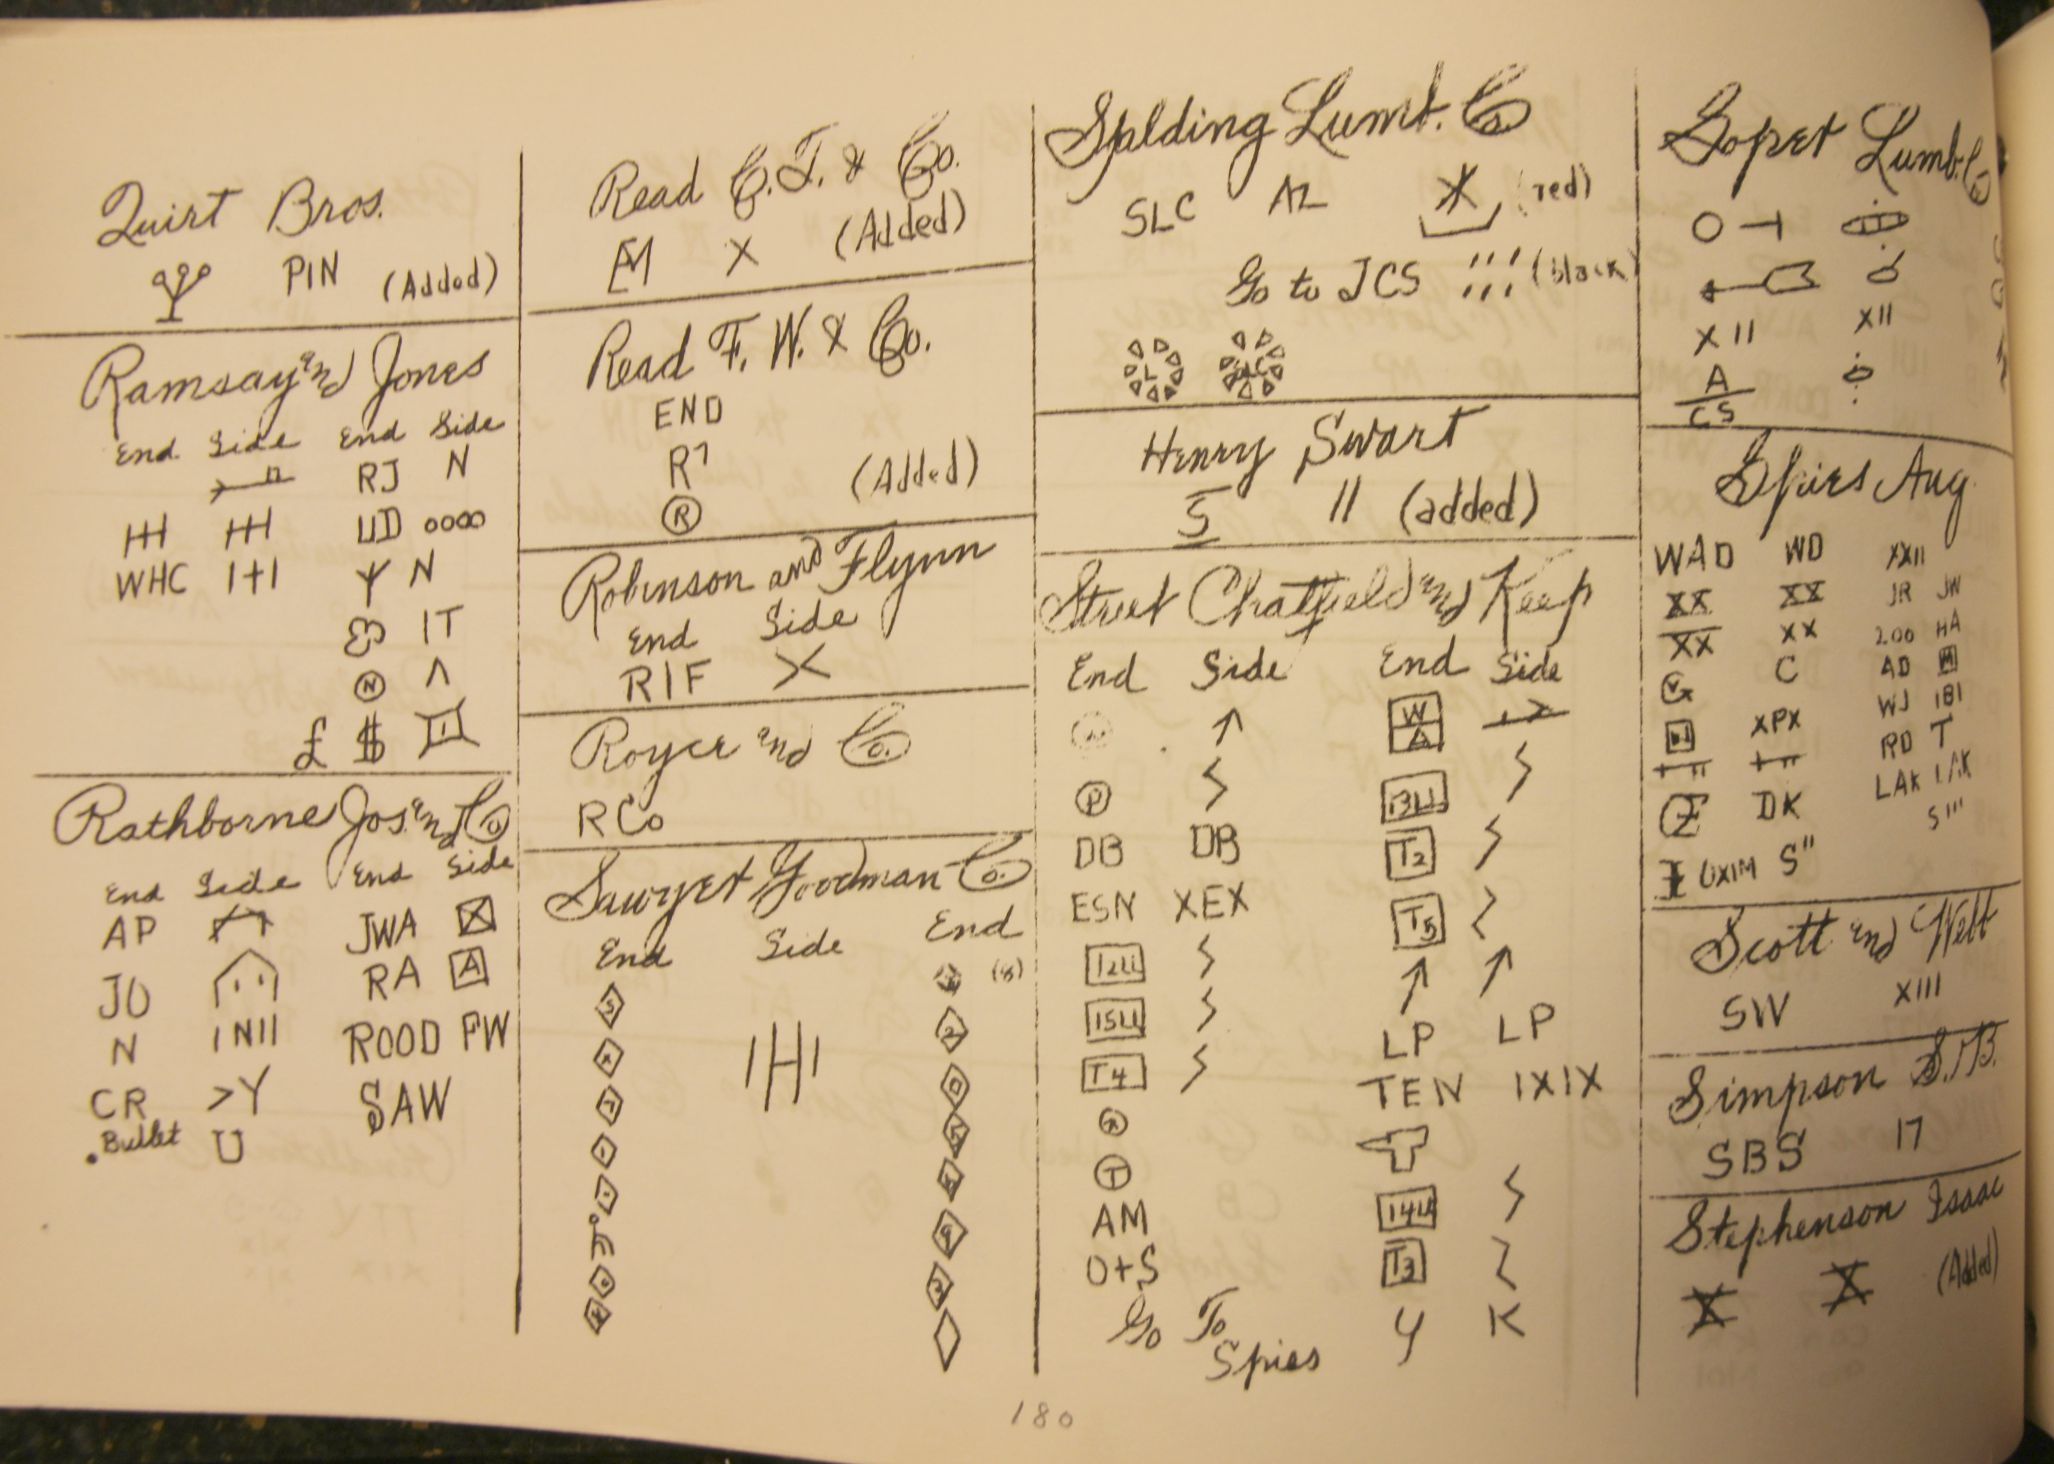 Quirt Bros.
PIN (Added)
Ramsay and Jones
End Side End Side
RJ N
UD oooo
WHC I+I N
IT
N Λ
£ $
Rathborne Jos. and Co
End Side End Side
AP JWA
JO RA A
N INII ROOD PW
CR >Y SAW
.Bullet U
Read C. T. & Co.
X (Added)
Read F. W. & Co.
END
R7 (Added)
R
Robinson and Flynn
End Side
RIF
Royce and Co.
RCo
Sawyer Goodman Co.
End Side End
S
2
IHI
0
5
9
2
Spalding Lumb. Co.
SLC AZ X (red)
Go to JCS (black)
L SLC
Henry Swart
S II (added)
Street Chatfield and Keep
End Side End Side
↑ W
P 13Li
DB DB T2
ESN XEX T5
12Li ↑ ↑
15Li LP LP
T4 TEN IXIX
T
AM 14Li
O+S T3
Go To Y K
Spies
Soper Lumb. Co
XII XII
A
CS
Spies Aug.
WAD WD XXII
XX XX JR JW
XX XX 200 HA
C AD M
XPX WJ IBI
RD T
DK LAK LAK
UXIM S" S'''
Scott and Webb
SW XIII
Simpson S. B.
SBS 17
Stephenson Isaac
X X (Added)
180